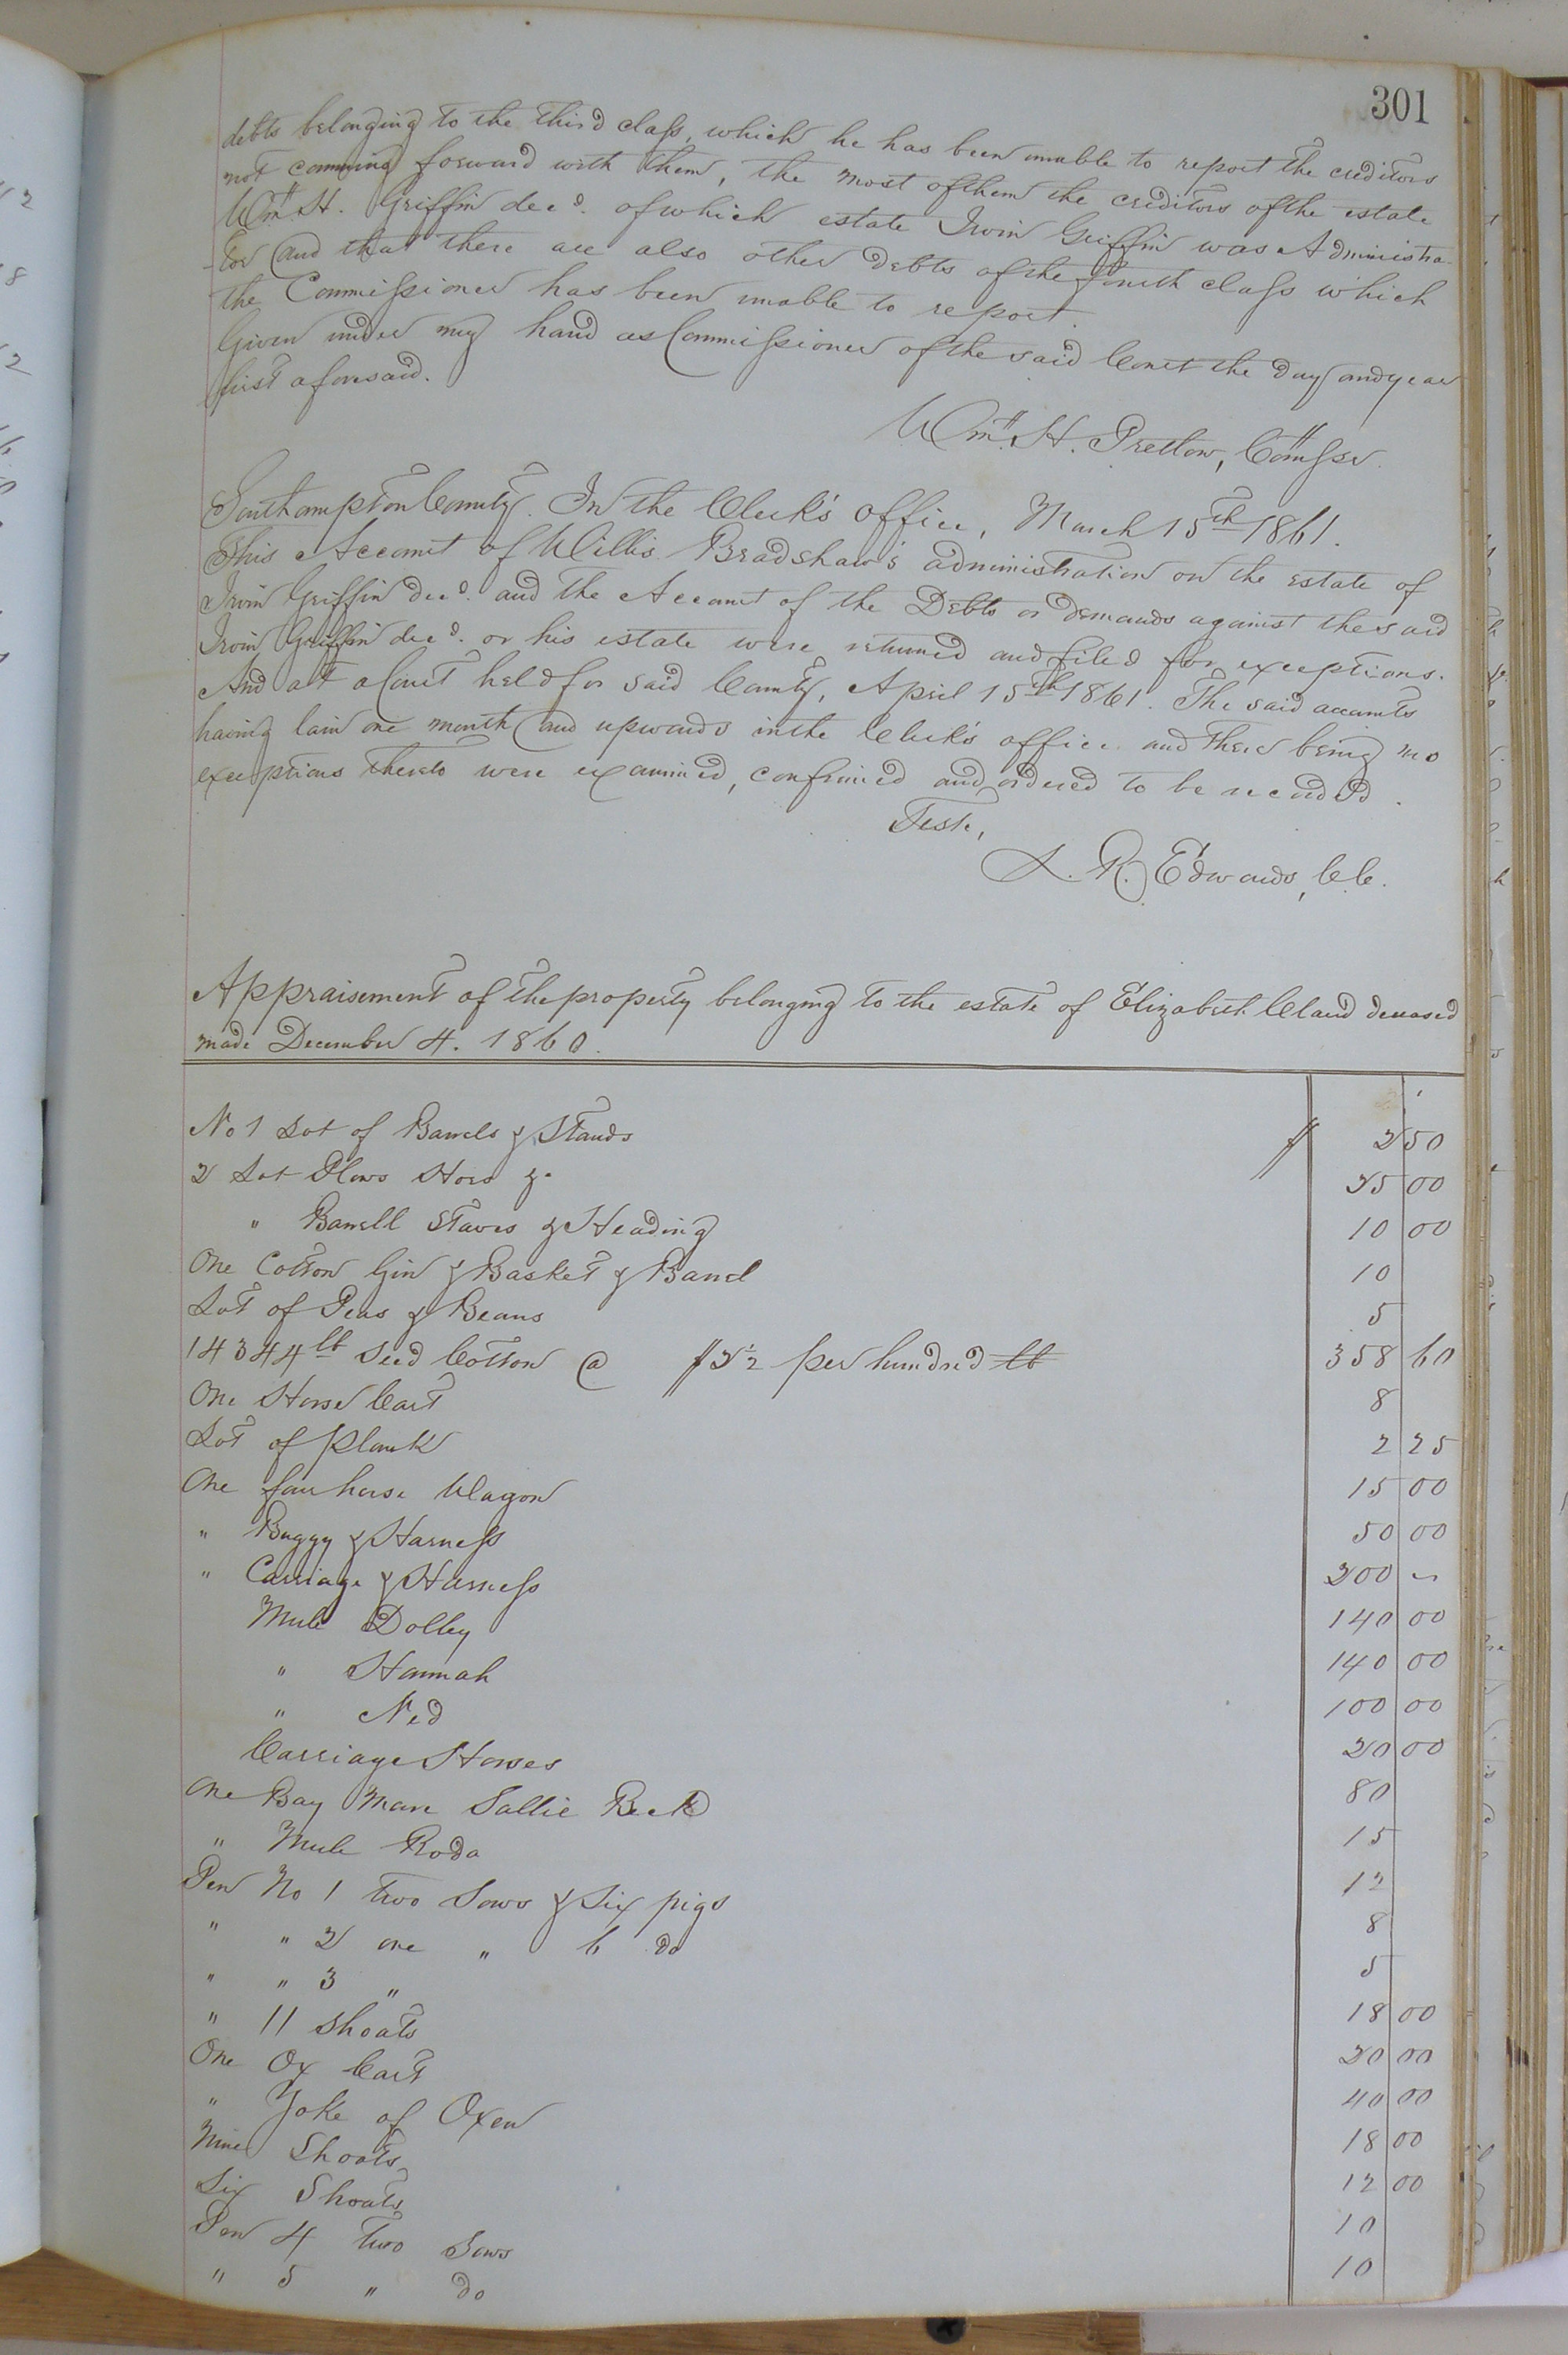 301
debts belonging to the third class, which he has been unable to report the creditors
not comming forward with them, the most of them the creditors of the estate
Wm. H. Griffin decd. of which estate Irvin Griffin was Administra-
-tor and that there are also other debts of the fourth class which
the Commissioner has been unable to report.
Given under my hand as Commissioner of the said Court the day and year
first aforesaid.
Wm. H. Pretlow, Comssr.
Southampton County. In the Clerk's office, March 15th 1861.
This Account of Willis Bradshaw's administration on the estate of
Irvin Griffin decd. and the Account of the Debts or demands against the said
Irvin Griffin decd. or his estate were returned and filed for exceptions.
And at a Court held for said County, April 15th 1861. The said accounts
having lain one month and upwards in the Clerk's office and there being no
exceptions thereto were examined, confirmed and ordered to be recorded.
Teste,
L. R. Edwards, CC.
Appraisement of the property belonging to the estate of Elizabeth Claud deceased
made December 4. 1860.
No 1 Lot of Barrels & Stands $ 2 50
2 Lot Plows Hoes &c 25 00
" Barrell Staves & Heading 10 00
One Cotton Gin & Basket & Barrel 10
Lot of Peas & Beans 5
14344 lb Seed Cotton @ $2 1/2 per hundred lb 358 60
One Horse Cart 8
Lot of plank 2 25
One four horse Wagon 15 00
" Buggy & Harness 50 00
" Carriage & Harness 200 "
Mule Dolley 140 00
" Hannah 140 00
" Ned 100 00
Carriage Horses 20 00
One Bay Mare Sallie Beck 80
" Mule Roda 15
Pen No 1 two Sows & Six pigs 12
" " 2 one " 6 do 8
" " 3 " 5
" 11 Shoats 18 00
One Ox Cart 20 00
" Yoke of Oxen 40 00
Nine Shoats 18 00
Six Shoats 12 00
Pen 4 two Sows 10
" 5 " do 10